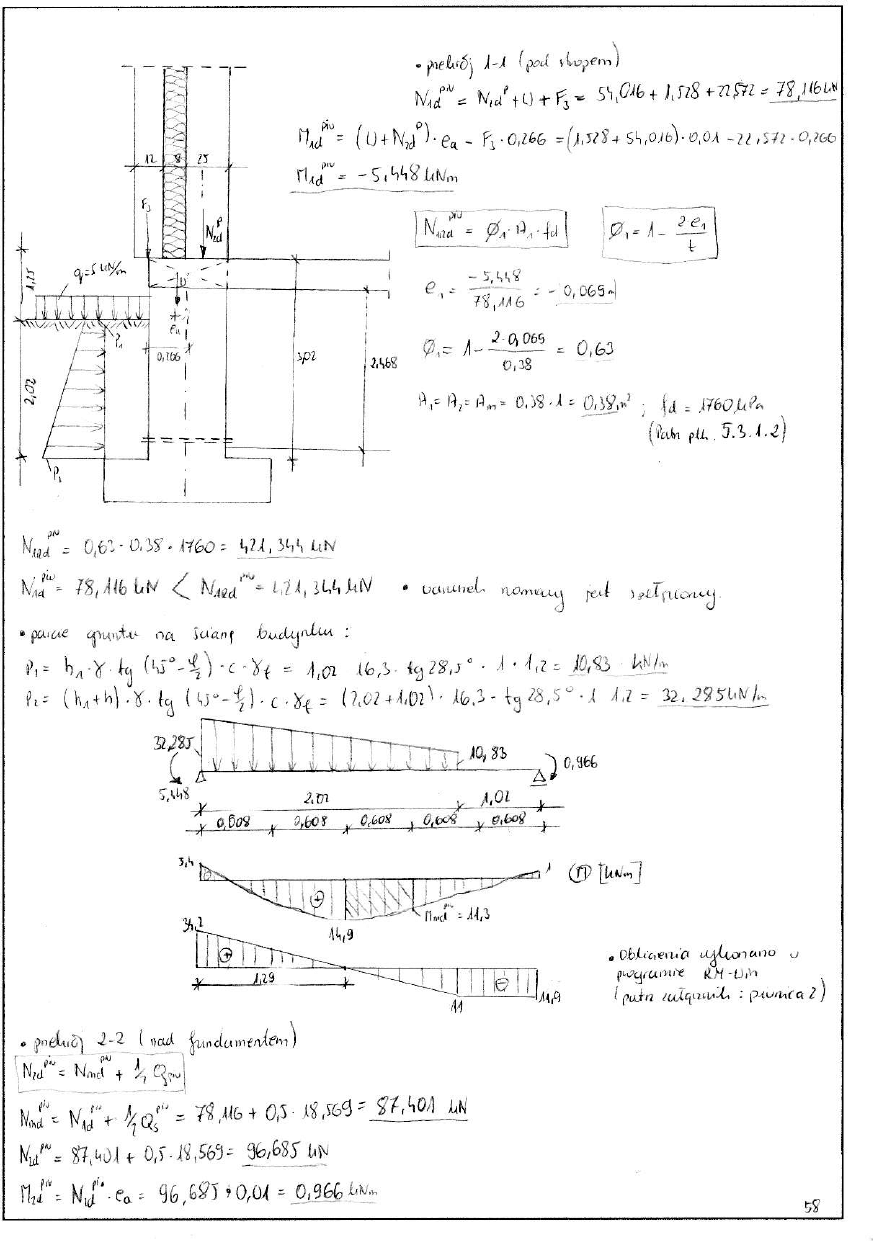 • przekrój 1-1 (pod stropem)
N1d^piw = N2d^P + U + F3 = 54,016 + 1,528 + 22,572 = 78,116 kN
M1d^piw = (U + N2d^P) · ea - F3 · 0,266 = (1,528 + 54,016) · 0,01 - 22,572 · 0,266
M1d^piw = -5,448 kNm
12 8 25
F3
N2d^P
N1Rd^piw = Ø1 · A1 · fd
Ø1 = 1 - 2e1/t
q=5 kN/m
1,25
U
ea
P1
0,266
3,02
2,468
2,02
P2
e1 = -5,448/78,116 = -0,065m
Ø1 = 1 - 2·0,065/0,38 = 0,63
A1 = A2 = Am = 0,38 · 1 = 0,38m² ; fd = 1760 kPa
(Patrz pkt. 5.3.1.2)
N1Rd^piw = 0,63 · 0,38 · 1760 = 421,344 kN
N1d^piw = 78,116 kN < N1Rd^piw = 421,344 kN • warunek normowy jest spełniony.
• parcie gruntu na ścianę budynku :
P1 = h1 · γ · tg (45° - φ/2) · c · γf = 1,02 16,3 · tg 28,5° · 1 · 1,2 = 10,83 kN/m
P2 = (h1+h) · γ · tg (45° - φ/2) · c · γf = (2,02 + 1,02) · 16,3 · tg 28,5° · 1 1,2 = 32,285 kN/m
32,285
10,83
0,966
5,448
2,02 1,02
0,608 0,608 0,608 0,608 0,608
5,4
1
(M) [kNm]
Mmd^piw = 11,3
14,9
34,2
1,29
11
11,9
• Obliczenia wykonano w
programie RM-Win
(patrz załącznik : piwnica 2)
• przekrój 2-2 (nad fundamentem)
N2d^piw = Nmd^piw + 1/2 Qpiw
Nmd^piw = N1d^piw + 1/2 Qs^piw = 78,116 + 0,5 · 18,569 = 87,401 kN
N2d^piw = 87,401 + 0,5 · 18,569 = 96,685 kN
M2d^piw = N2d^piw · ea = 96,685 · 0,01 = 0,966 kNm
58